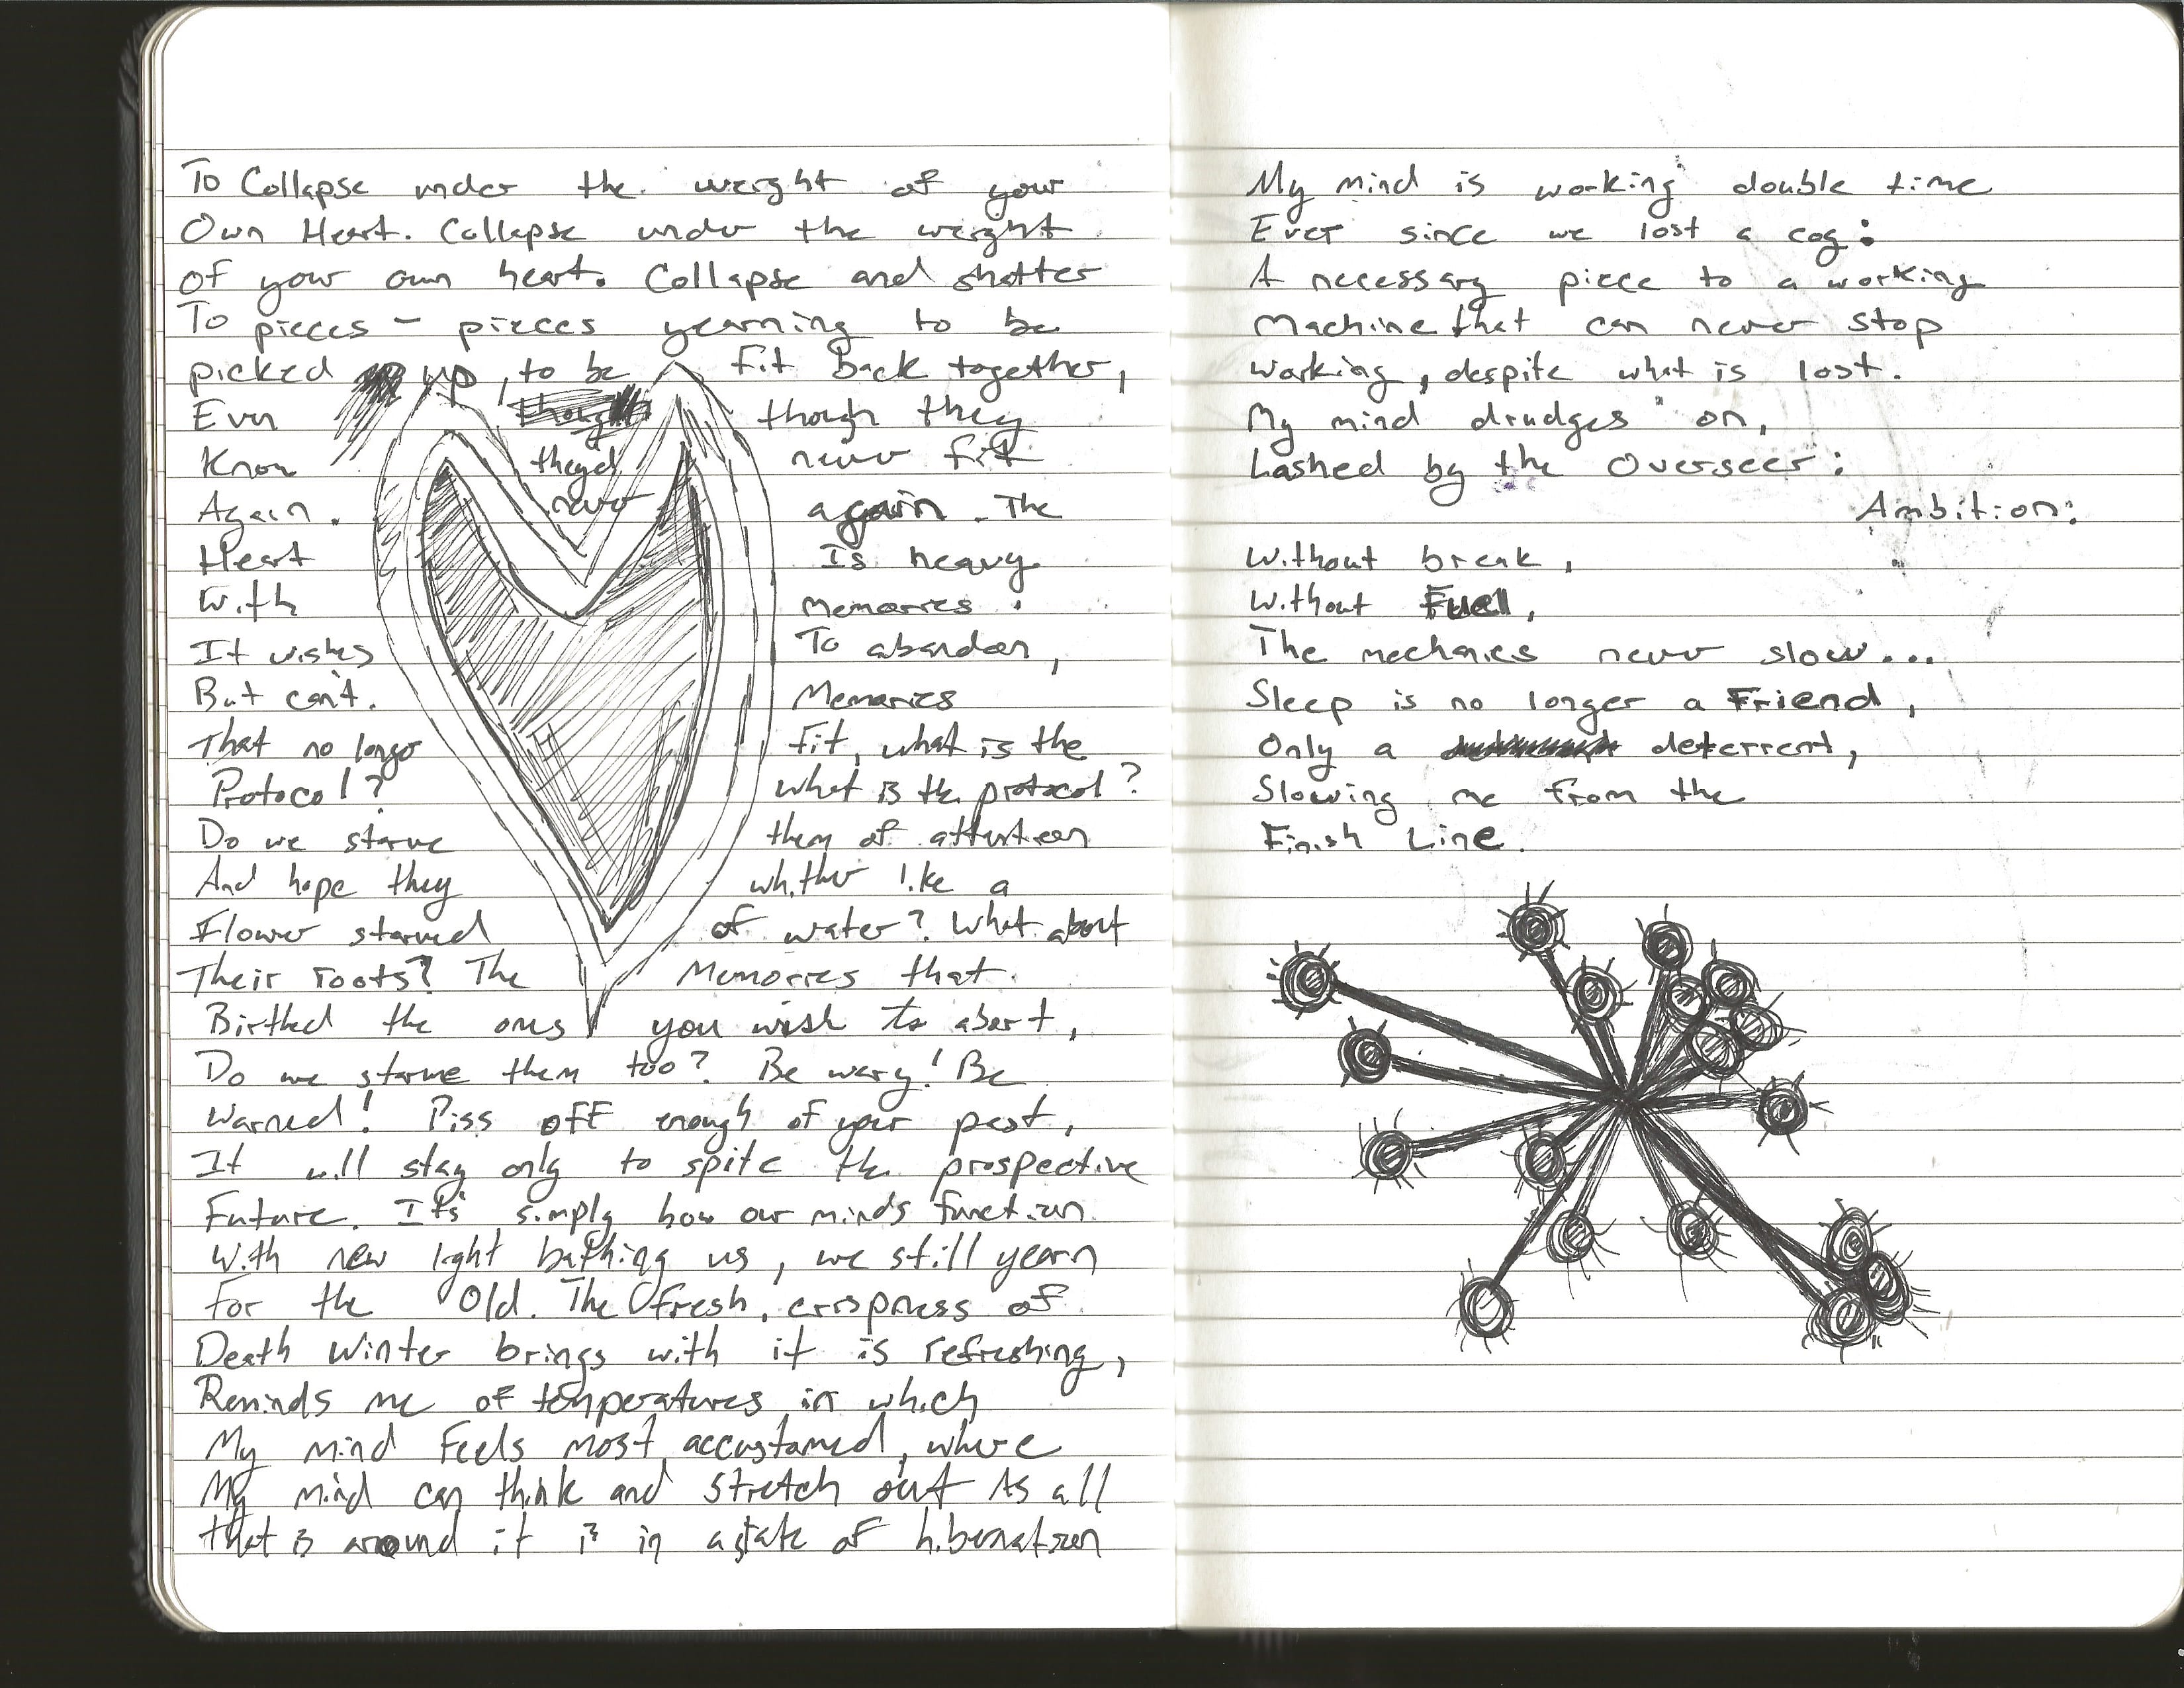 To Collapse under the weight of your
Own Heart. Collapse under the weight
of your own heart. Collapse and shatter
To pieces - pieces yearning to be
picked up, to be fit back together,
Even though though they
Know they'd never fit
Again. never again. The
Heart Is heavy
With Memories.
It wishes To abandon,
But can't. Memories
That no longer fit, what is the
Protocol? what is the protocol?
Do we starve them of attention
And hope they whither like a
Flower starved of water? What about
Their roots? The Memories that
Birthed the ones you wish to abort,
Do we starve them too? Be wary! Be
Warned! Piss off enough of your past,
It will stay only to spite the prospective
Future. It's simply how our minds function.
With new light bathing us, we still yearn
For the Old. The fresh, crispness of
Death Winter brings with it is refreshing,
Reminds me of temperatures in which
My mind Feels most accustomed, where
My mind can think and stretch out As all
that is around it is in a state of hibernation
My mind is working double time
Ever since we lost a cog:
A necessary piece to a working
Machine that can never stop
working, despite what is lost.
My mind drudges on,
Lashed by the Overseer:
Ambition:
Without break,
Without Fuel,
The mechanics never slow...
Sleep is no longer a Friend,
Only a deterrent,
Slowing me from the
Finish Line.